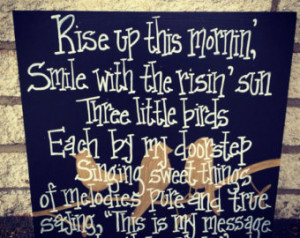 Rise up this mornin',
Smile with the risin' sun
Three little birds
Each by my doorstep
Singing sweet things
of melodies pure and true
saying, "This is my message